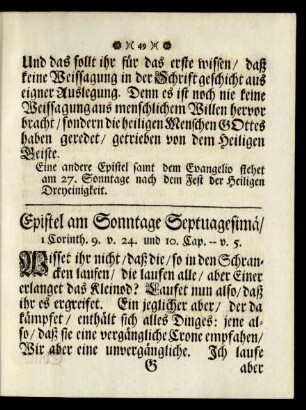 ❁ )( 49 )( ❁
Und das sollt ihr für das erste wissen/ daß
keine Weissagung in der Schrift geschicht aus
eigner Auslegung. Denn es ist noch nie keine
Weissagung aus menschlichem Willen hervor
bracht/ sondern die heiligen Menschen GOttes
haben geredet/ getrieben von dem Heiligen
Geiste.
Eine andere Epistel samt dem Evangelio stehet
am 27. Sonntage nach dem Fest der Heiligen
Dreyeinigkeit.
Epistel am Sonntage Septuagesimä/
1 Corinth. 9. v. 24. und 10. Cap. -- v. 5.
Wisset ihr nicht/ daß die/ so in den Schran-
cken laufen/ die laufen alle/ aber Einer
erlanget das Kleinod? Laufet nun also/ daß
ihr es ergreifet. Ein jeglicher aber/ der da
kämpfet/ enthält sich alles Dinges: jene al-
so/ daß sie eine vergängliche Crone empfahen/
Wir aber eine unvergängliche. Ich laufe
G aber